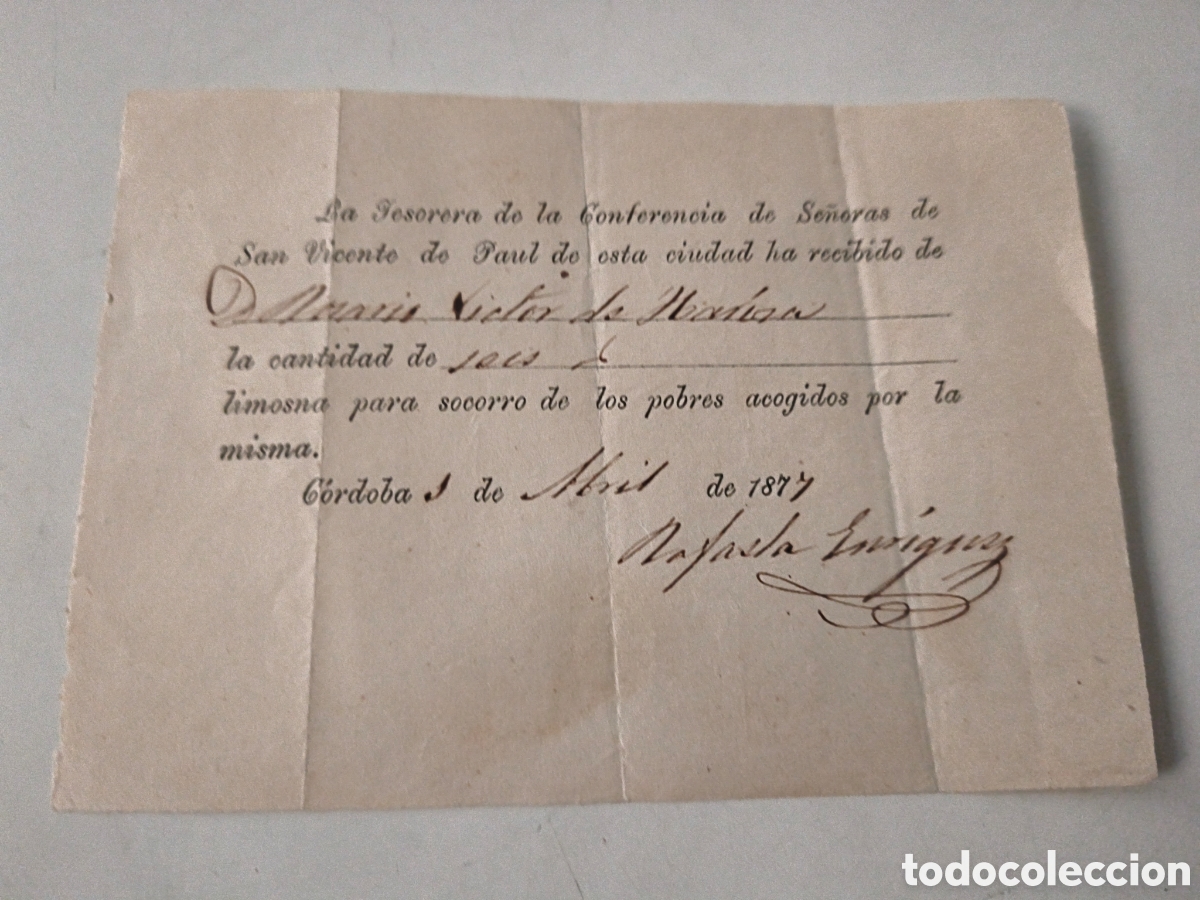 La Tesorera de la Conferencia de Señoras de
San Vicente de Paul de esta ciudad ha recibido de
D Rosario Victor de
la cantidad de seis
limosna para socorro de los pobres acogidos por la
misma.
Córdoba 1 de Abril de 1877
Rafaela Enriquez
todocoleccion